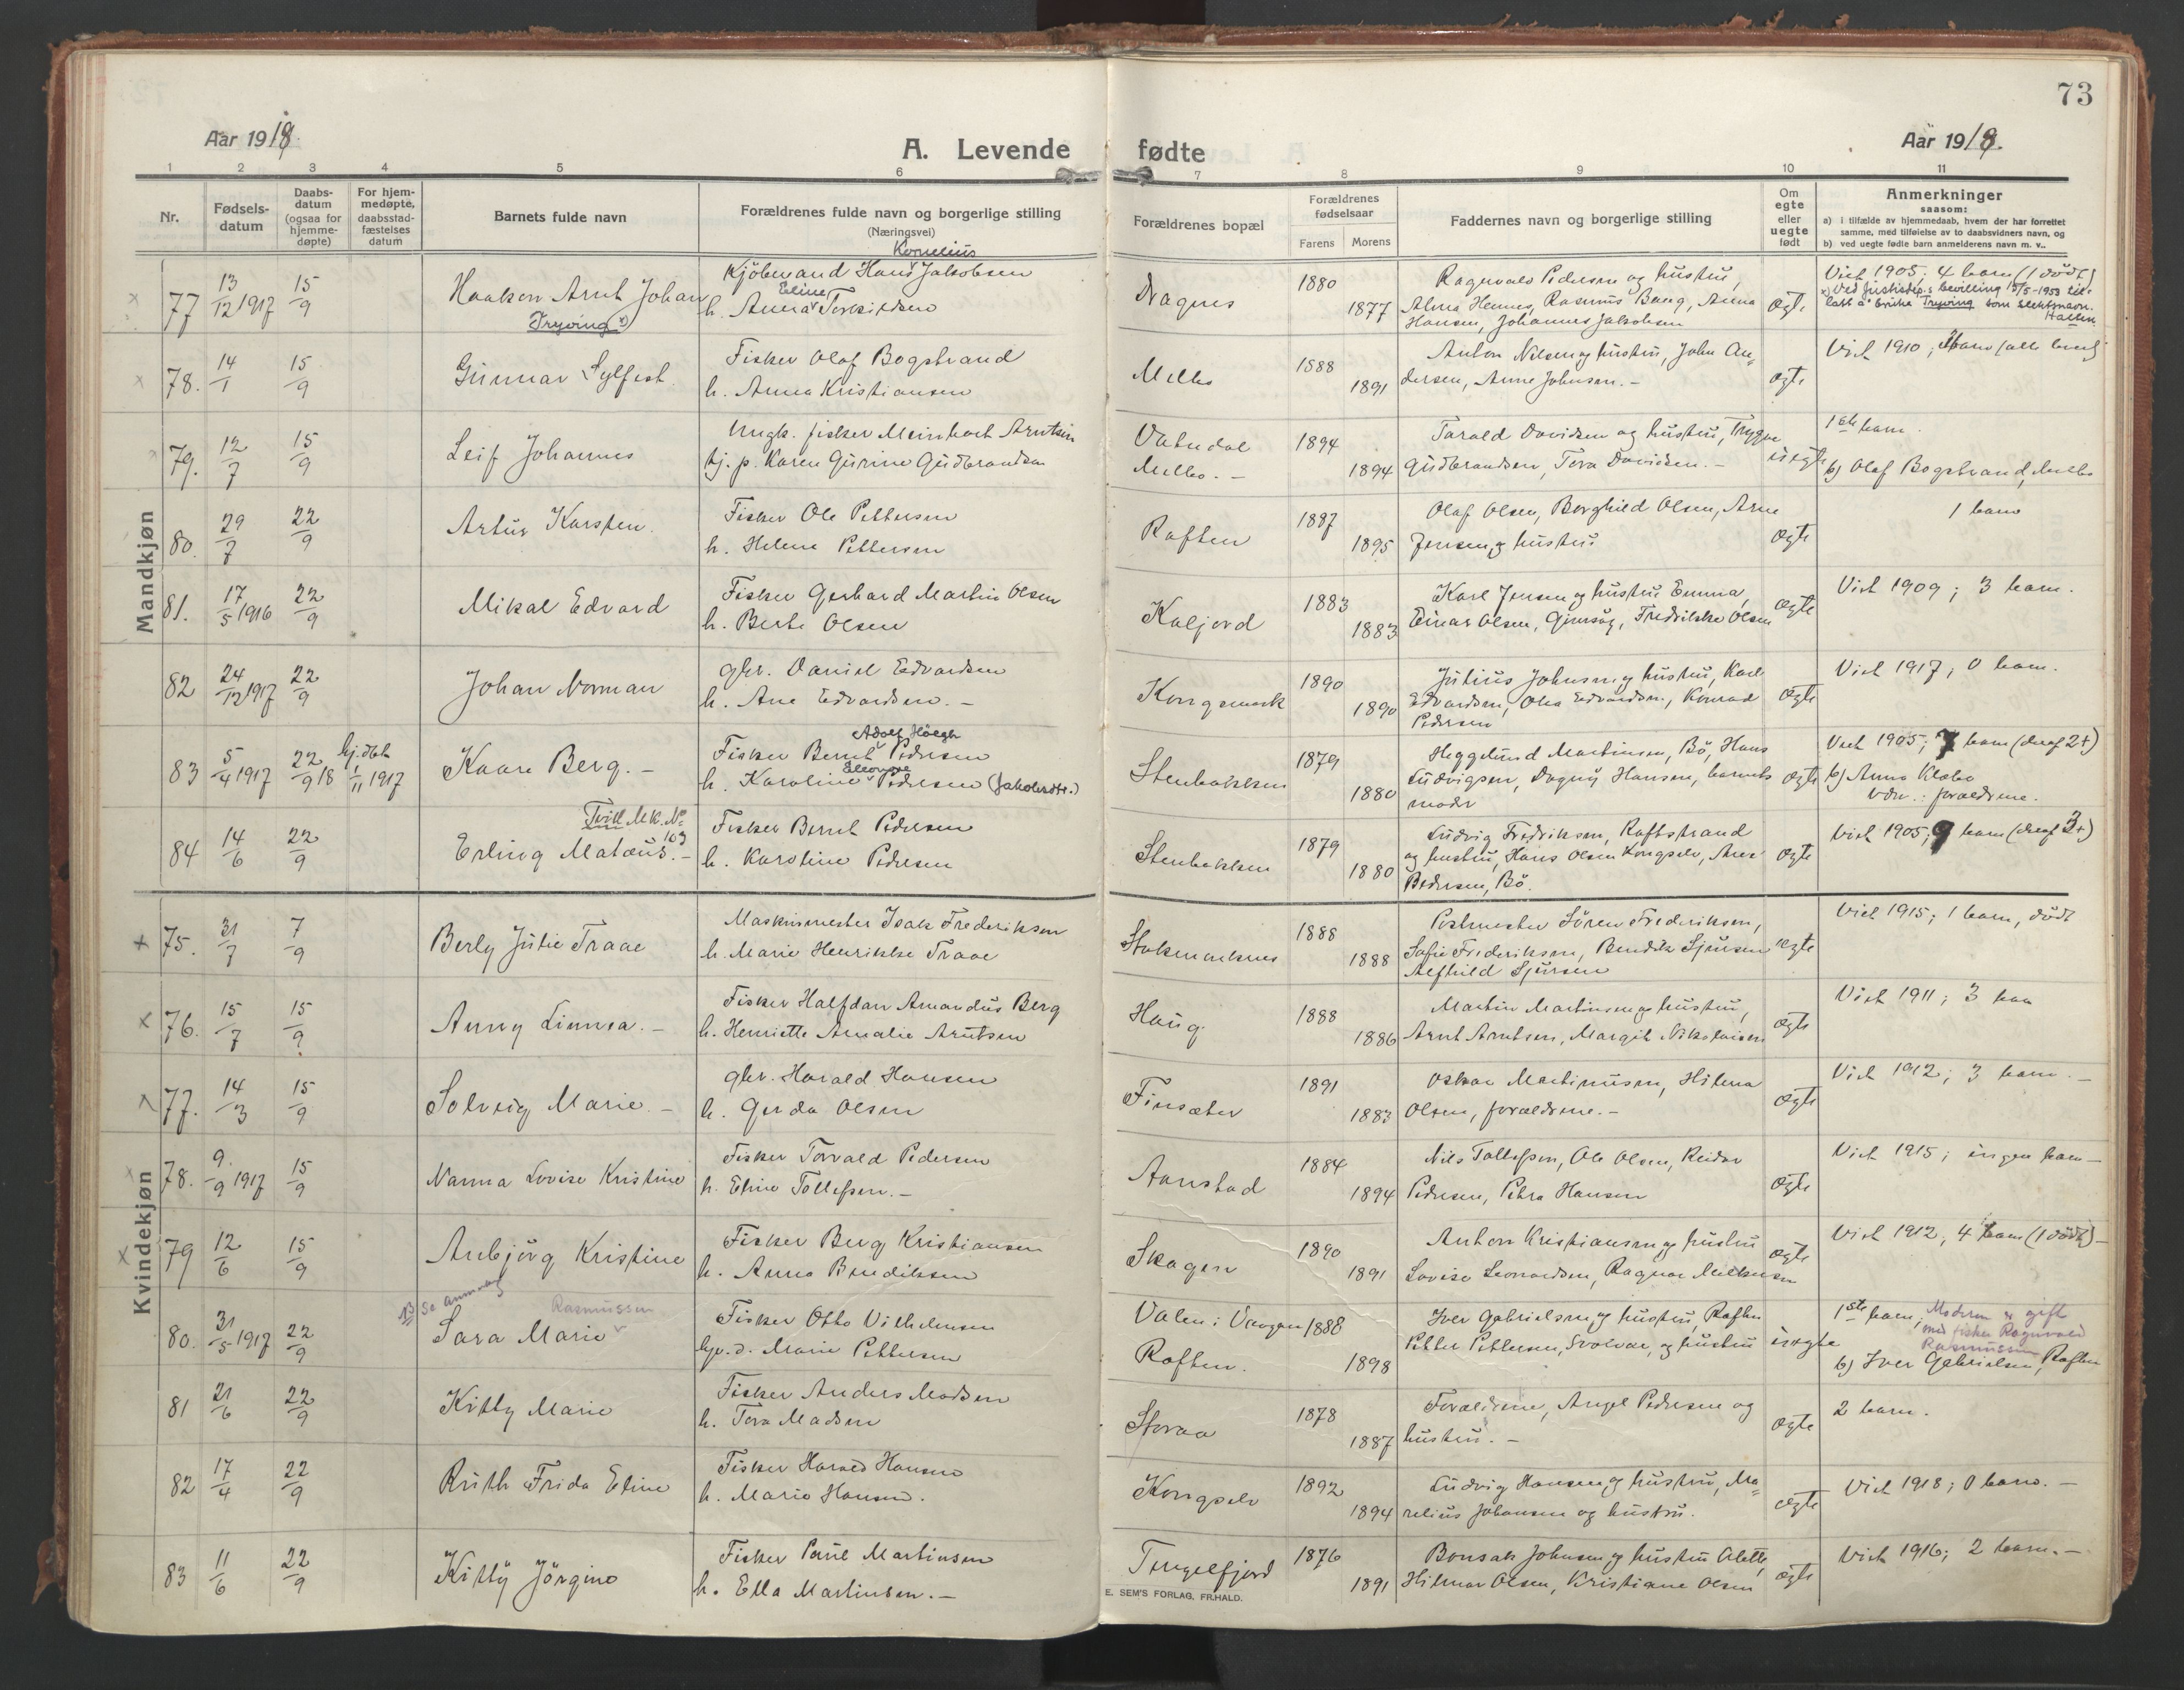 73
Aar 1918.
A. Levende fødte
Aar 1918.
1 2 3 4 5 6 7 8 9 10 11
Nr.
Fødsels-datum
Daabs-datum (ogsaa for hjemme-døpte)
For hjem-medøpte, daabsstad-fæstelses datum
Barnets fulde navn
Forældrenes fulde navn og borgerlige stilling
(Næringsvei)
Forældrenes bopæl
Forældrenes fødselsaar
Farens Morens
Faddernes navn og borgerlige stilling
Om egte eller uegte født
Anmerkninger
saasom:
a) i tilfælde av hjemmedaab, hvem der har forrettet samme, med tilføielse av to daabsvidners navn, og
b) ved uegte fødte barn anmelderens navn m. v..
Mandkjøn
77 13/12 1917 15/9 Haakon Arnt Johan
Tryving x)
Kornelius
Kjöbmand Hans Jakobsen
Eline
h. Anna Torkildsen
Dragnes 1880 1877
Ragnvald Pedersen og hustru,
Alma Hennes, Rasmus Bang, Anna
Hansen, Johannes Jakobsen
Ægte
Viet 1905; 4 barn (1 dödt)
x) Ved Justisdep.s bevilling 5/5-1953 till-
latt å bruke Tryving som slektsnavn.
78. 14/1 15/9 Gunnar Sylfest.
Fisker Olaf Bogstrand
h. Anna Kristiansen
Melbo 1888 1891
Anton Nilsen og hustru, John An-
dersen, Anne Johnsen. -
Ægte
Viet 1910;
79. 12/7 15/9 Leif Johannes
Ungk. fisker Meinhart Arntsen
tj. p. Karen Gurine Gudbrandsen
Vatndal 1894
Melbo. - 1894
Tarald Davidsen og hustru, Trygve
Gudbrandsen, Tora Davidsen. -
uegte
1ste barn.
b) Olaf Bogstrand, Melbo
80. 29/7 22/9 Artur Karsten.
Fisker Ole Pettersen
h. Helene Pettersen
Raften 1887 1895
Olaf Olsen, Borghild Olsen, Arne
Jensen og hustru
Ægte
1 barn
81. 17/5 1916 22/9 Mikal Edvard
Fisker Gerhard Martin Olsen
h. Berte Olsen
Kaljord 1883 1883
Karl Jensen og hustru Emma,
Einar Olsen, Gimsöy, Fredrikke Olsen
Ægte
Viet 1909; 3 barn.
82 24/12 1917 22/9 Johan Norman
gbr. Daniel Edvardsen
h. Ane Edvardsen. -
Kongsmark 1890 1890
Julius Johnsen og hustru, Karl
Edvardsen, Olea Edvardsen, Konrad
Pedersen
Ægte
Viet 1917; 0 barn.
83 5/4 1917 22/9 18 hj.döbt 1/11 1917 Kaare Berg. -
Adolf Höegh
Fisker Bernt Pedersen
Eleonore
h. Karoline Pedersen (Jakobsdtr.)
Stenbakken 1879 1880
Heggelund Martinsen, Bö, Hans
Ludvigsen, Dagny Hansen, barnets
moder
Ægte
Viet 1905; 7 barn (deraf 2+)
b) Anna Klæbo
vdn.: forældrene.
Tvill Mk. No 103
84 14/6 22/9 Erling Matæus. -
Fisker Bernt Pedersen
h. Karoline Pedersen
Stenbakken 1879 1880
Ludvig Fredriksen, Raftstrand
og hustru, Hans Olsen Kongselv, Ane
Pedersen, Bö.
Ægte
Viet 1905; 9 barn (deraf 3+)
Kvindekjøn
75. 31/7 7/9 Berly Julie Traae
Maskinmester Isak Frederiksen
h. Marie Henrikke Traae
Stokmarknes 1888 1888
Postmester Sören Frederiksen,
Sofie Frederiksen, Bendik Sjursen
Alfhild Sjursen
ægte
Viet 1915; 1 barn, dödt
76. 15/7 15/9 Anny Linnea. -
Fisker Halfdan Amandus Berg
h. Henriette Amalie Arntsen
Haug. 1888 1886
Martin Martinsen og hustru,
Arnt Arntsen, Margit Nikolaisen
Ægte
Viet 1911; 3 barn
77. 14/3 15/9 Solveig Marie. -
gbr. Harald Hansen
h. Gerda Olsen
Finsæter 1891 1883
Oskar Martinusen, Hilma
Olsen, forældrene. -
Ægte
Viet 1912; 3 barn. -
78. 9./9 1917 15/9 Nanna Lovise Kristine
Fisker Torvald Pedersen
h. Eline Tollefsen. -
Aanstad 1884 1894
Nils Tollefsen, Ole Olsen, Reidar
Pedersen, Petra Hansen
Ægte
Viet 1915; ingen barn -
79 12/6 15/9 Anbjörg Kristine
Fisker Berg Kristiansen
h. Anna Bendiksen
Skagen 1890 1891
Anton Kristiansen og hustru
Lovise Leonardsen, Ragnar Mikkelsen
Ægte
Viet 1912, 4 barn (1 dödt) -
NB se anmerkn
80. 31/5 1917 22/9 Sara Marie Rasmussen
Fisker Otto Vilhelmsen
hjv. d. Marie Pettersen
Valen i Vaagan 1888
Raften. 1898
Iver Gabrielsen og hustru, Raften
Petter Pettersen, Svolvær, og hustru
uægte
1ste barn, Moderen er gift
med fisker Ragnvald
Rasmussen
b) Iver Gabrielsen, Raften
81 21/6 22/9 Kitty Marie
Fisker Anders Madsen
h. Tora Madsen
Storaa 1878 1887
Forældrene, Angel Pedersen og
hustru. -
Ægte
2 barn.
82 17/4 22/9 Ruth Frida Eline
Fisker Harald Hansen
h. Marie Hansen.
Kongselv 1892 1894
Ludvig Hansen og hustru, Ma-
relius Johansen og hustru.
Ægte
Viet 1918; 0 barn. -
83 11/6 22/9 Kitty Jörgine
Fisker Paul Martinsen
h. Ella Martinsen. -
Tengelfjord 1876 1891
Bonsak Johnsen og hustru Alette,
Hilmar Olsen, Kristiane Olsen
Ægte
Viet 1916; 2 barn. -
E. SEM'S FORLAG, FR.HALD.